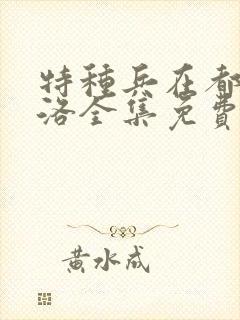 特種兵在都
洛全集免費
黃水成